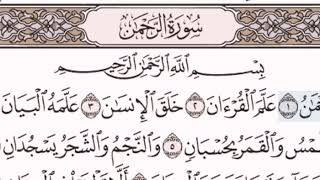 سُورَةُ الرَّحْمَٰن
بِسْمِ اللَّهِ الرَّحْمَٰنِ الرَّحِيمِ
١ عَلَّمَ الْقُرْءَانَ ٢ خَلَقَ الْإِنسَٰنَ ٣ عَلَّمَهُ الْبَيَانَ
وَالْقَمَرُ بِحُسْبَانٍ ٥ وَالنَّجْمُ وَالشَّجَرُ يَسْجُدَانِ